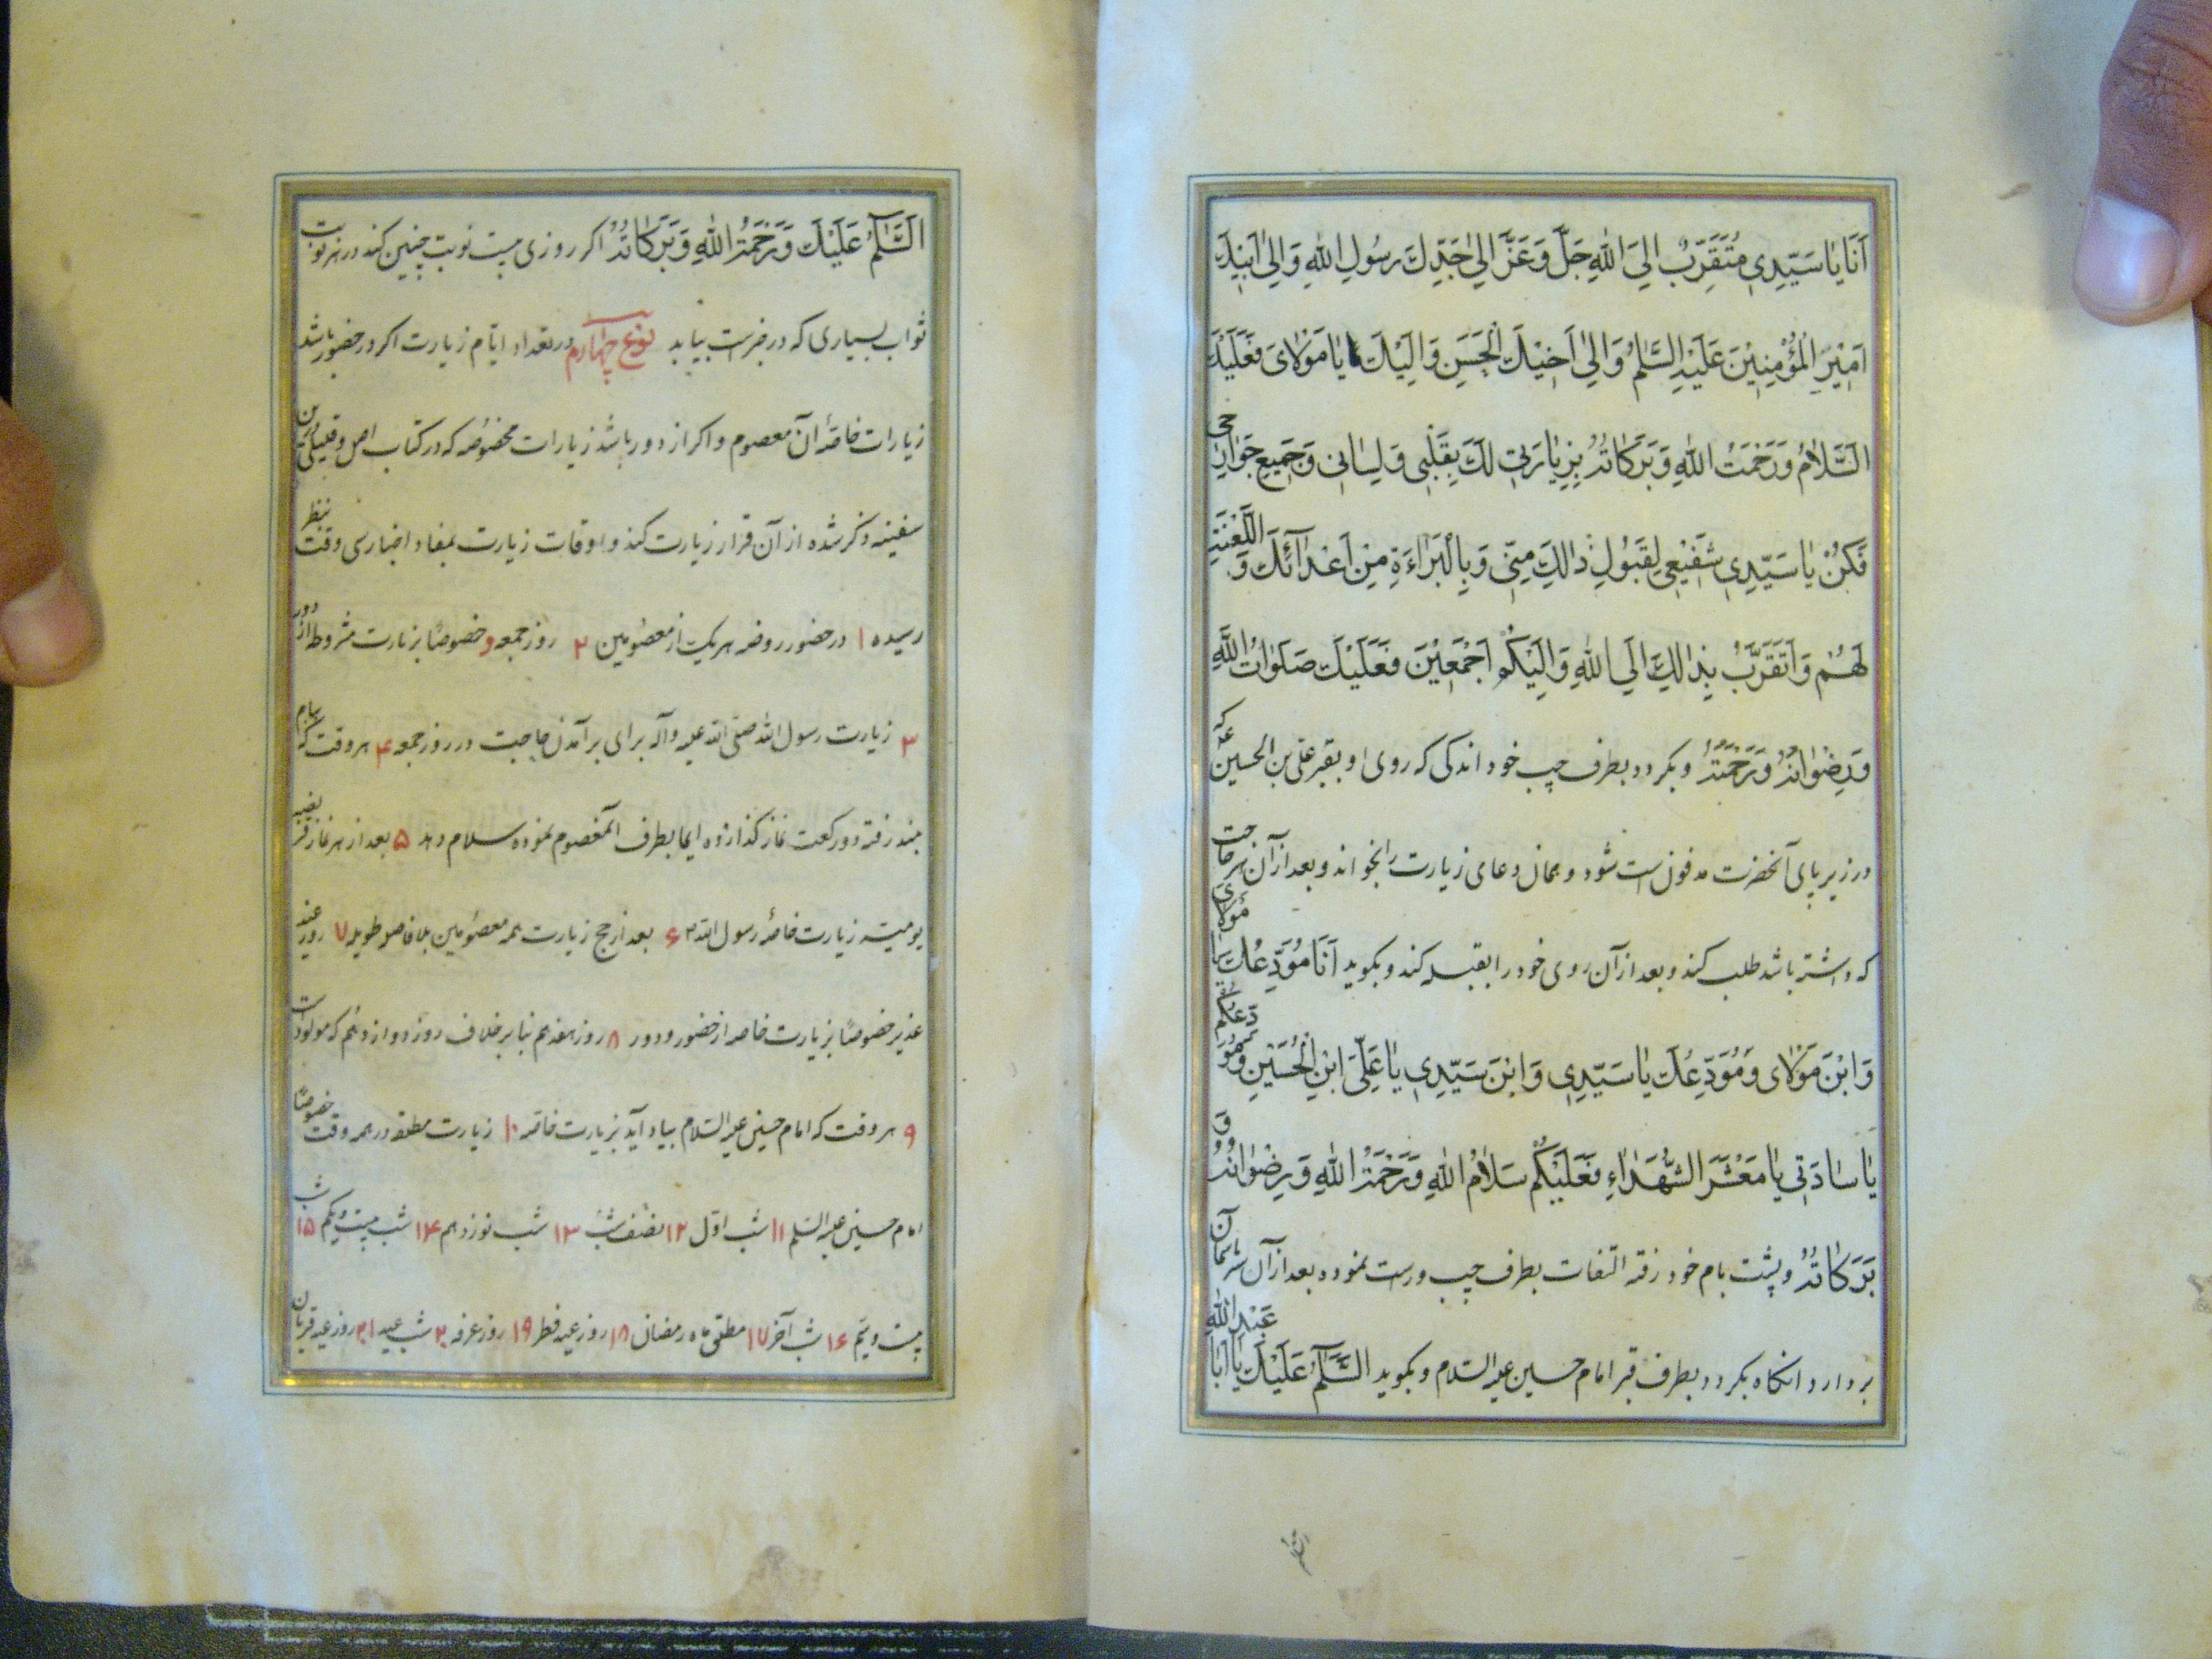 اَنَا يَا سَيِّدِي مُتَقَرِّبٌ اِلَى اللهِ جَلَّ وَعَزَّ اِلىٰ جَدِّكَ رَسُولِ اللهِ وَاِلىٰ اَبيِكَ
اَمِيْرِ الْمُؤْمِنِيْنَ عَلَيْهِ السَّلٰمُ وَاِلىٰ اَخِيْكَ الْحَسَنِ وَاِلَيْكَ يٰا مَوْلاىَ فَعَلَيْكَ
السَّلامُ وَرَحْمَتُ اللهِ وَبَرَكٰاتُهُ بِزِيٰارَتِى لَكَ بِقَلْبِى وَلِسٰانِى وَجَمِيعِ جَوٰارِحى
فَكُنْ يٰا سَيِّدِى شَفِيْعِى لِقَبُولِ ذٰالِكَ مِنّى وَبِالْبَرٰاءَةِ مِنْ اَعْدٰآئِكَ وَ اللَّعْنَتِ
لَهُمْ وَاَتَقَرَّبُ بِذٰالِكَ اِلَى اللهِ وَاِلَيْكُمْ اَجْمَعِيْنَ فَعَلَيْكَ صَلَوٰاتُ اللهِ
وَرِضْوٰانُهُ وَرَحْمَتُهُ و بكردد بطرف چپ خود اندكى كه روى او بقبر على بن الحسين عه كه
در زير پاى آنحضرت مدفون است شود و همان دعاى زيارت را بخواند و بعد از آن هر حاجت
كه داشته باشد طلب كند و بعد از آن روى خود را بقبله كند و بكويد اَنَا مُوَدِّعُكَ يا مَوْلاىَ
وَابْنَ مَوْلاىَ وَمُوَدِّعُكَ يٰا سَيِّدِى وَابْنَ سَيِّدِى يٰا عَلِىَّ ابْنِ الْحُسَيْنِ وَمُوَدِّعُكُمْ
يٰا سٰادَتِى يٰا مَعْشَرَ الشُّهَدٰاءِ فَعَلَيْكُمْ سَلامُ اللهِ وَرَحْمَةُ اللهِ وَرِضْوٰانُهُ وَ
بَرَكٰاتُهُ و پشت بام خود رفته التفات بطرف چپ و راست نموده بعد از آن سر بآسمان
بردارد انكاه بكردد بطرف قبر امام حسين عليه السلام و بكويد السَّلٰمُ عَلَيْكَ يٰا اَبٰا عَبْدِ اللهِ
السلام
السَّلٰمُ عَلَيْكَ وَرَحْمَةُ اللهِ وَبَرَكٰاتُهُ اكر روزى بيست نوبت چنين كند در هر نوبت
ثواب بسيارى كه در خبر است بيابد نوع چهارم در تعداد ايّام زيارت اكر در حضور باشد
زيارات خاصّهٔ آن معصوم و اكر از دور باشد زيارات مخصوصه كه در كتاب اصل و
سفينه ذكر شده از آن قرار زيارت كند و اوقات زيارت بمفاد اخبارى وقت بنظر
رسيده ١ در حضور روضه هر يك از معصومين ٢ روز جمعه و خصوصًا بزيارت مشروطه از دور
٣ زيارت رسول الله صلّى الله عليه و آله براى برآمدن حاجت در روز جمعه ۴ هر وقت كه ببام
بلند رفته دو ركعت نماز كذارده ايما بطرف آنمعصوم نموده سلام دهد ۵ بعد از هر نماز فريضه
يوميّه زيارت خاصّه رسول الله ۶ بعد از حج زيارت همه معصومين بلا فاصله طويله ٧ روز عيد
غدير خصوصًا بزيارت خاصه از حضور و دور ٨ روز هفدهم بنا بر خلاف دوازدهم كه مولود است
٩ هر وقت كه امام حسين عليه السلام بياد آيد بزيارت خاصّه ١٠ زيارت مطلقه در همه وقت خصوصًا
امام حسين عليه السلم ١١ شب اوّل ١٢ نصف شب ١٣ شب نوزدهم ١۴ شب بيست و يكم ١۵ شب
بيست و سيّم ١۶ شب آخر ١٧ مطلق ماه رمضان ١٨ روز عيد فطر ١٩ روز عرفه ٢٠ شب عيد ٢١ روز عيد قربان